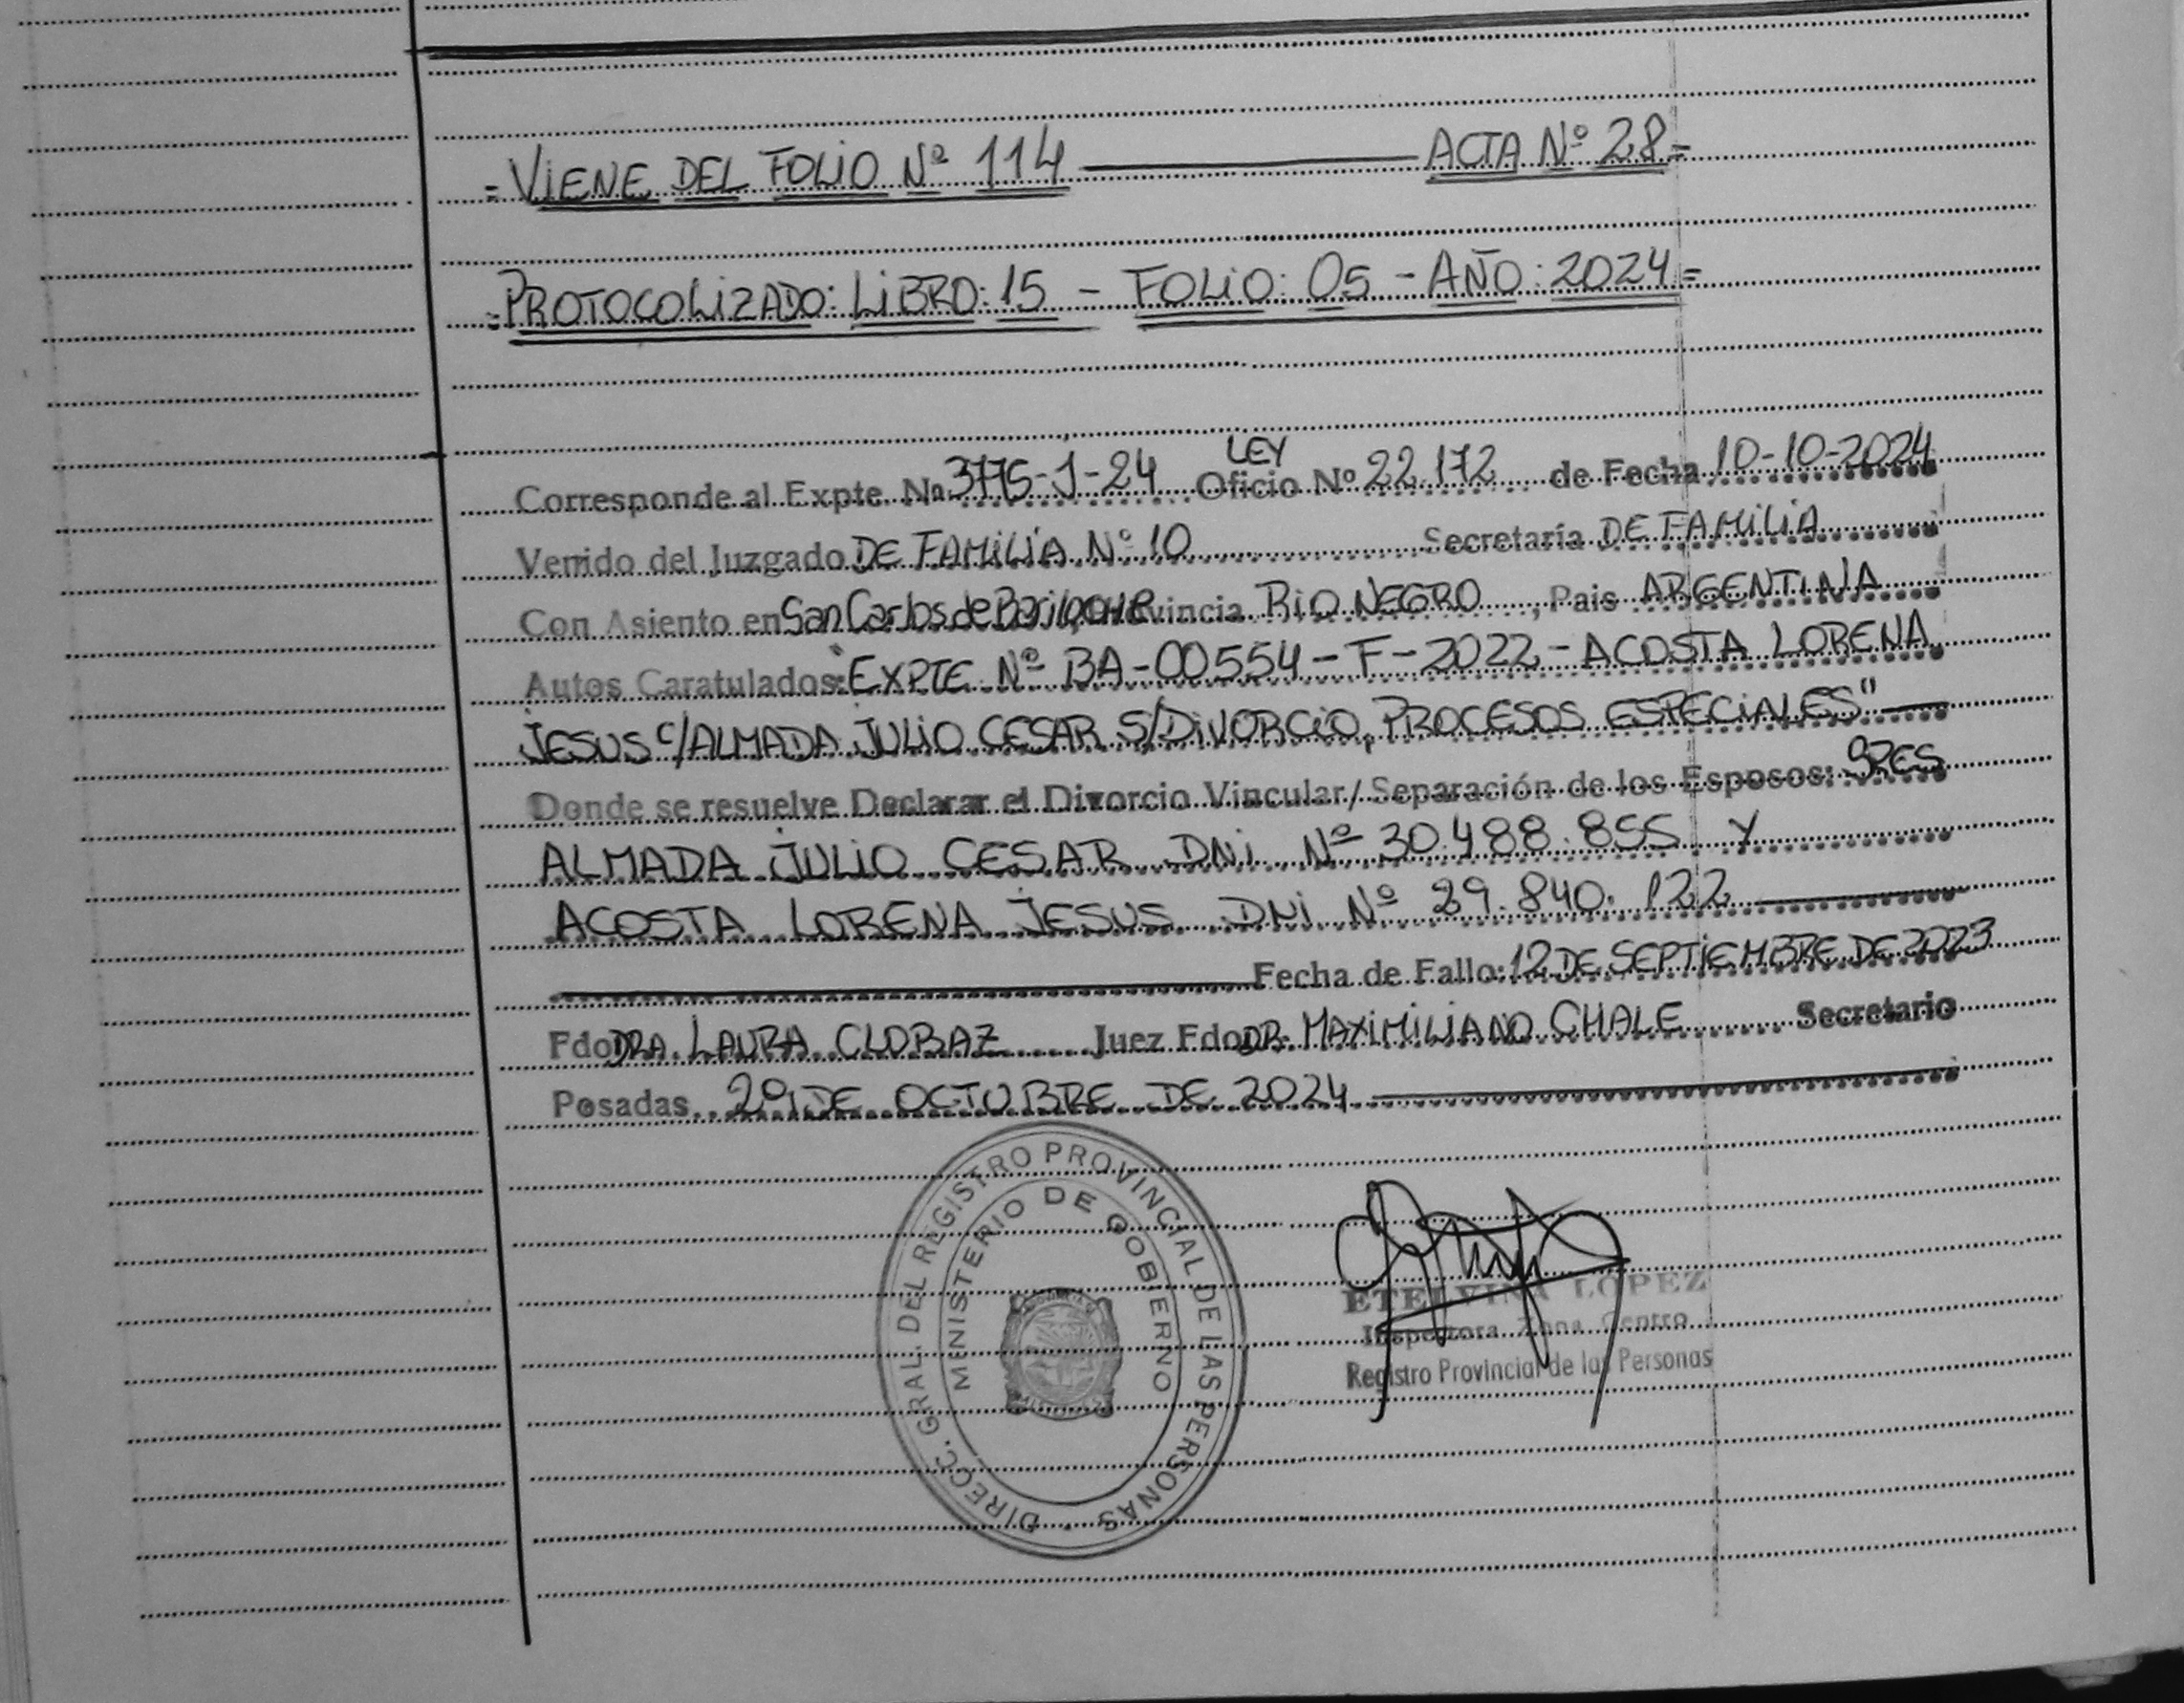 =VIENE DEL FOLIO Nº 114 ACTA Nº 28=
=PROTOCOLIZADO: LIBRO: 15 - FOLIO: 05 - AÑO: 2024=
LEY
Corresponde al Expte. Nº 3775-J-24 Oficio Nº 22.172 de Fecha 10-10-2024
Venido del Juzgado DE FAMILIA Nº 10 Secretaría DE FAMILIA
Con Asiento en San Carlos de Bariloche Provincia RIO NEGRO, Pais ARGENTINA
Autos Caratulados: EXPTE Nº BA-00554-F-2022- ACOSTA LORENA
JESUS C/ALMADA JULIO CESAR S/DIVORCIO, PROCESOS ESPECIALES"
Donde se resuelve Declarar el Divorcio Vincular/Separación de los Esposos: SRES
ALMADA JULIO CESAR DNI Nº 30.488.855 Y
ACOSTA LORENA JESUS DNI Nº 29.840.122
Fecha de Fallo: 12 DE SEPTIEMBRE DE 2023
Fdo DRA. LAURA CLOBAZ Juez Fdo DR. MAXIMILIANO CHALE Secretario
Posadas, DE OCTUBRE DE 2024
DIRECC. GRAL. DEL REGISTRO PROVINCIAL DE LAS PERSONAS
MINISTERIO DE GOBIERNO
ETELVINA LOPEZ
Inspectora Zona Centro
Registro Provincial de las Personas